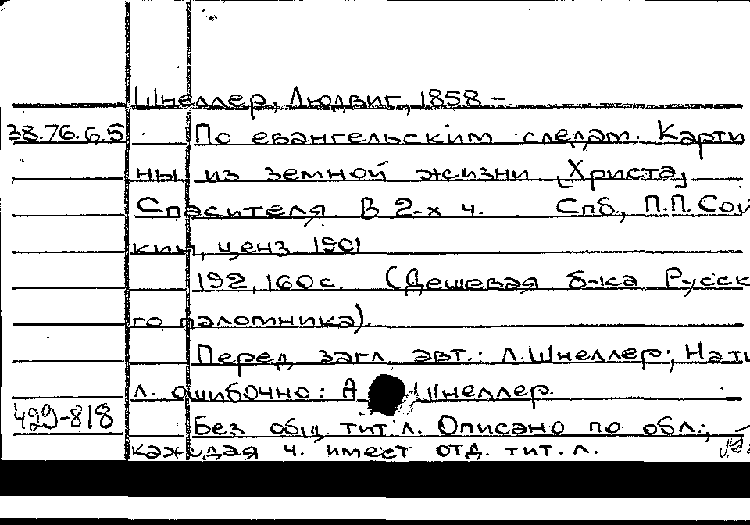 Шнеллер, Людвиг, 1858 -
38.76.6.5 По евангельским следам. Карти
ны из земной жизни [Христа]
Спасителя. В 2-х ч. Спб, П.П. Сой
кин, ценз 1901
192, 160 с. (Дешевая б-ка Русск
го паломника).
Перед загл. авт.: Л. Шнеллер; На ти
л. ошибочно: А Шнеллер.
499-818 Без общ. тит. л. Описано по обл.;
каждая ч. имеет отд. тит. л.